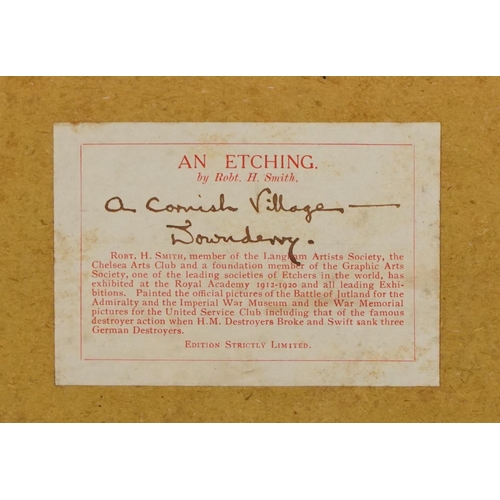 AN ETCHING.
by Robt. H. Smith.
A Cornish Village —
Downderry.
Robt, H. Smith, member of the Langham Artists Society, the
Chelsea Arts Club and a foundation member of the Graphic Arts
Society, one of the leading societies of Etchers in the world, has
exhibited at the Royal Academy 1912-1920 and all leading Exhi-
bitions. Painted the official pictures of the Battle of Jutland for the
Admiralty and the Imperial War Museum and the War Memorial
pictures for the United Service Club including that of the famous
destroyer action when H.M. Destroyers Broke and Swift sank three
German Destroyers.
Edition Strictly Limited.